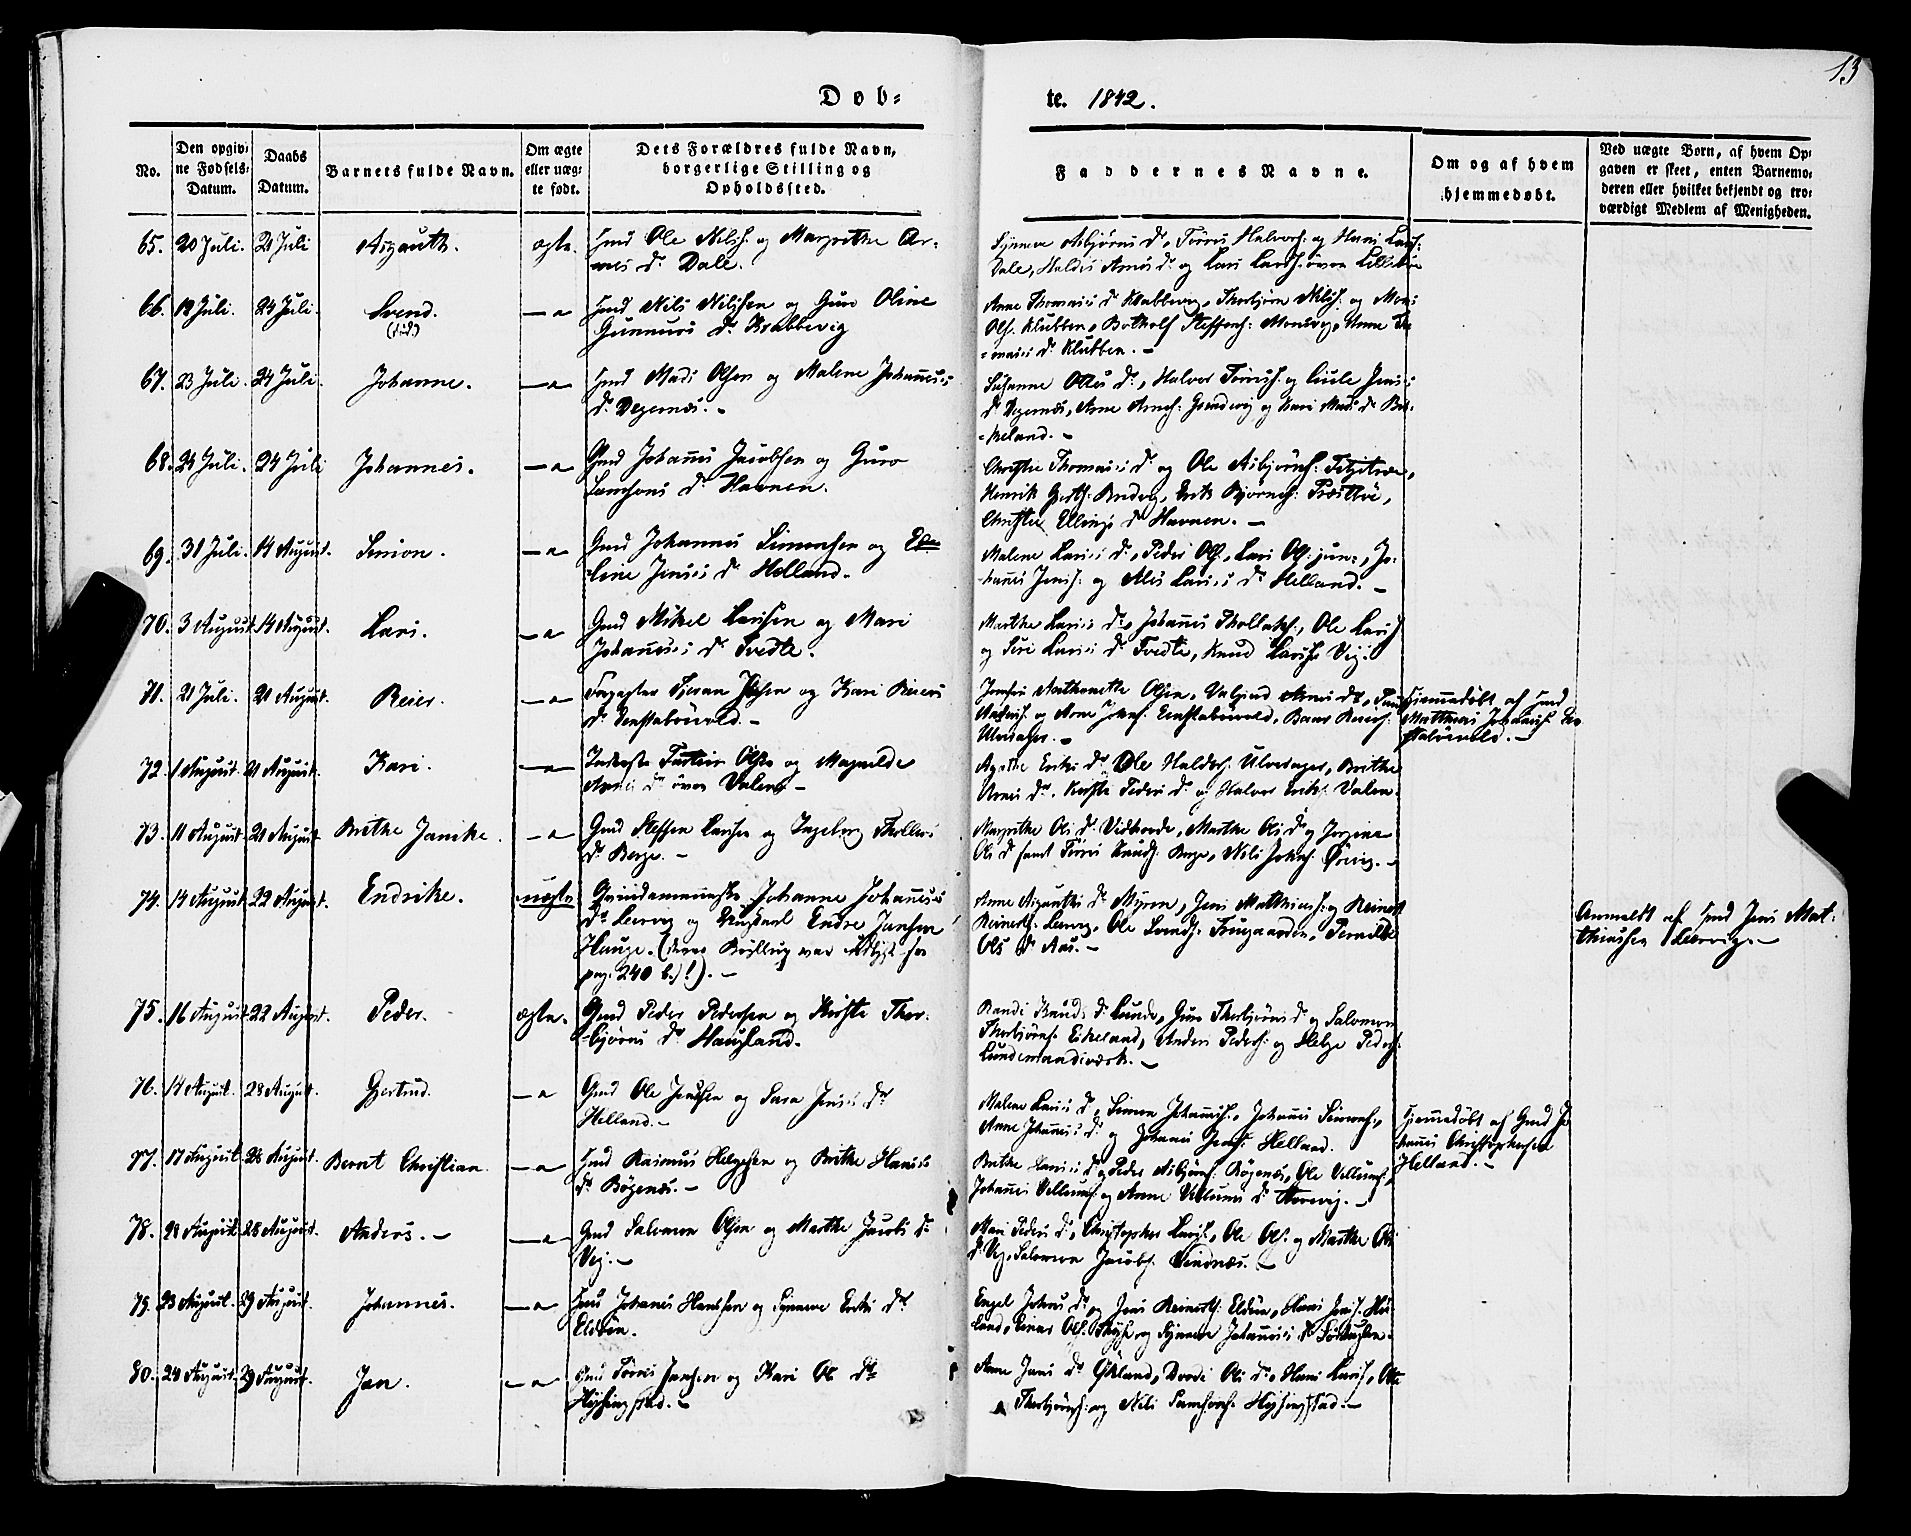 13
Døb-
te. 1842.
No.
Den opgiv-
ne Fødsels-
Datum.
Daabs
Datum.
Barnets fulde Navn.
Om ægte
eller uæg-
te født.
Dets Forældres fulde Navn,
borgerlige Stilling og
Opholdssted.
Faddernes Navne.
Om og af hvem
hjemmedøbt.
Ved uægte Børn, af hvem Op-
gaven er skeet, enten Barnemo-
deren eller hvilket bekjendt og tro-
værdigt Medlem af Menigheden.
65. 20 Juli. 21 Juli Asgauth. ægte. Gmd Ole Nilss. og Margrethe Ar-
nes Dr Dale.
Synneve Asbjørns Dr, Tørris Halvors. og Hans Lars.
Dale, Haldis Arnes Dr og Lars Lars. øvre
66. 12 Juli. 24 Juli. Svend.
Gmd Nils Nilssen og Guro Oline
Gunnars Dr Krabbevig
Anne Thomas's Dr Krabbevig, Thorbjørn Nilss. og Mons
Ols. Klubben, Botholf Steffens. Monsvog, Anne Tho-
mas's Dr Klubben. -
67. 23 Juli. 24 Juli. Johanne. Gmd Mads Olsen og Malene Johannes's
Dr Vegernes. -
Susanne Ottes Dr, Halvor Tørris. og Jens's
Dr Vegernes, Arne Arnes. og Kari Mads Dr Bir-
keland. -
68. 24 Juli. 24 Juli Johannes. Gmd Johannes Jacobsen og Guro
Samsons Dr Havnen.
Christie Thomas's Dr og Ole Asbjørns.
Henrik Gerts. Erik Bjørns.
Christie Ellings Dr Havnen. -
69. 31 Juli. 14 August. Simon. Gmd Johannes Simonsen og
line Jens's Dr Helland.
Malene Lars's Dr, Peder Ols., Lars Ols. jun., Jo-
hannes Jens. og Alis Lars's Dr Helland. -
70. 3 August. 14 August. Lars. Gmd Mikel Larsen og Mari
Johannes's Dr Tvedte.
Marthe Lars's Dr, Johannes Thollaks., Ole Lars.
og Siri Lars's Dr Tvedte, Knud Lars. Vig.
71. 21 Juli. 21 August. Reier. Kari Reiers
Dr
Arne Jens.
Ulvesager. -
Hjemmedøbt af Gmd
Matthias Johannes.
72. 1 August. 21 August. Kari. Torstein Olsen og Magnilde
Arnes Dr øvre Valen. -
Agathe Eriks Dr Ole Haldors. Ulvesager, Brithe
Arnes Dr. Kirsti Peders Dr og Halvor Eriks. Valen.
73. 11 August. 21 August. Brithe Janike. Gmd Steffen Larsen og Ingeborg Tholles
Dr Berge. -
Margrethe Ols Dr Vidsteede, Marthe Ols Dr og Jorgine
Ols Dr samt Tørris Knuds. Berge, Nils Johns. Ørevig. -
74. 14 August. 22 August. Endrike. uægte Johanne Johannes's
Dr Leervog og Ungkarl Endre Jansen
Hauge. (deres Brøllup var
pag. 240 b.)!). -
Anne Asgauths Dr Myren, Jens Matthias. og Reinert
Reinerts. Leervog, Ole Svends. Frugaarden, Pernille
Ols Dr Aas. -
Anmeldt af Gmd Jens Mat-
thiassen Leervig. -
75. 16 August. 22 August. Peder. ægte. Gmd Peder Pedersen og Kirsti Thor-
bjørns Dr Haugland.
Randi Knuds Dr Lunde, Guro Thorbjørns Dr og Salomon
Thorbjørns. Eikeland, Anders Peders. og Helge Peders.
Lundemandsværk. -
76. 14 August. 28 August. Gjertrud. Gmd Ole Jensen og Sara Jens's Dr
Helland. -
Malene Lars's Dr, Simon Johannes., Johannes Simons.,
Anne Johannes's Dr og Johannes Jens. Helland.
Hjemmedøbt af Gmd Jo-
hannes Christophersen
Helland. -
77. 17 August. 28 August. Bernt Christian. Gmd Rasmus Helgesen og Brithe Hans's
Dr Bøgenes. -
Brithe Hans's Dr og Peder Asbjørns. Bøgenes, Ole Villums.,
Johannes Villums. og Anne Villums Dr
78. 28 August. 28 August. Anders. - Gmd Salomon Olsen og Marthe Jacobs Dr
Vig. -
Mari Peders Dr, Christopher Lars., Ole Ols. og Marthe Ols
Dr Vig, Salomon Jacobs. Vindnes. -
79. 23 August. 29 August. Johannes. Gmd Johannes Hansen og Synneve Eriks Dr
Eldøen.
Engel Johns Dr og Jens Reinerts. Eldøen, Hans Jens. Hel-
land, Einar Ols. og Synneve Johannes's Dr
80. 24 August. 29 August. Jan. Gmd Tørris Jansen og Kari Ols Dr
Høisingstad. -
Anne Jans Dr Økland, Dorde Ols Dr, Hans Lars., Ole
Thorbjørns. og Nils Samsons. Høisingstad. -